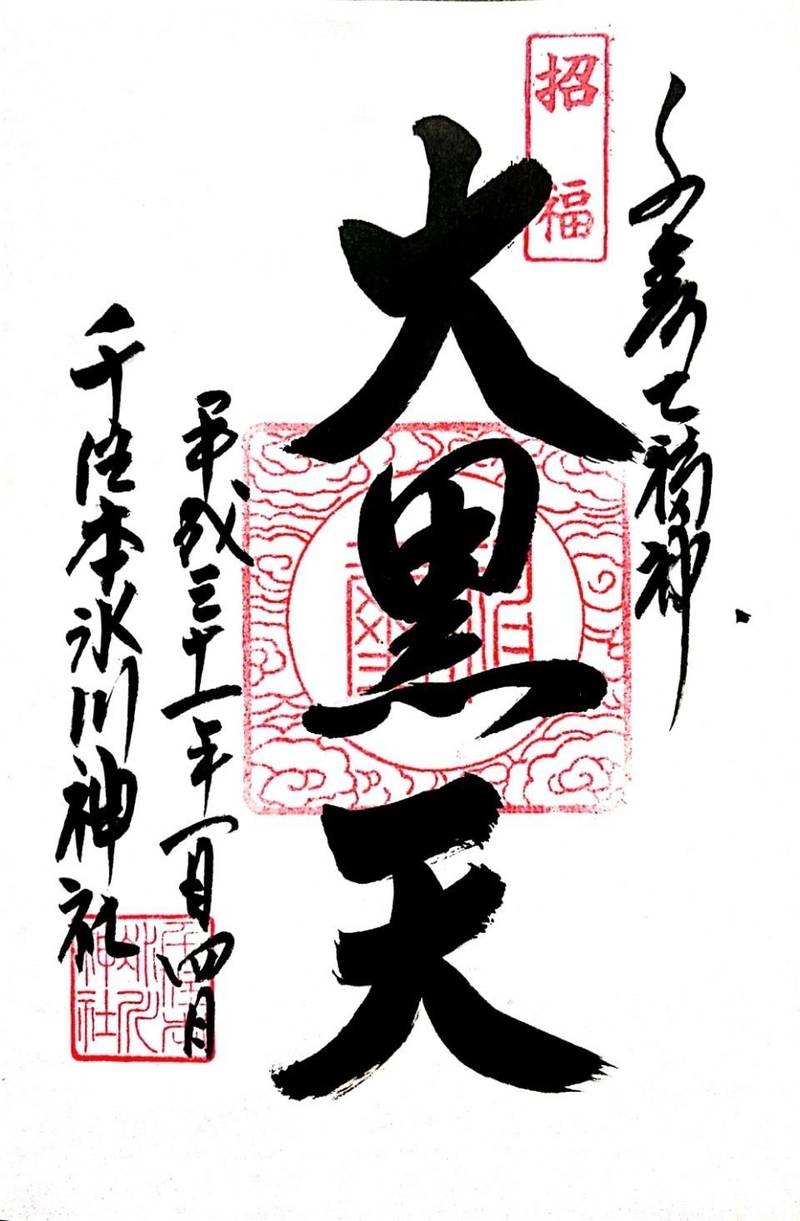 千寿七福神
招福
大黒天
平成三十一年一月四日
千住本氷川神社
千住本氷川神社